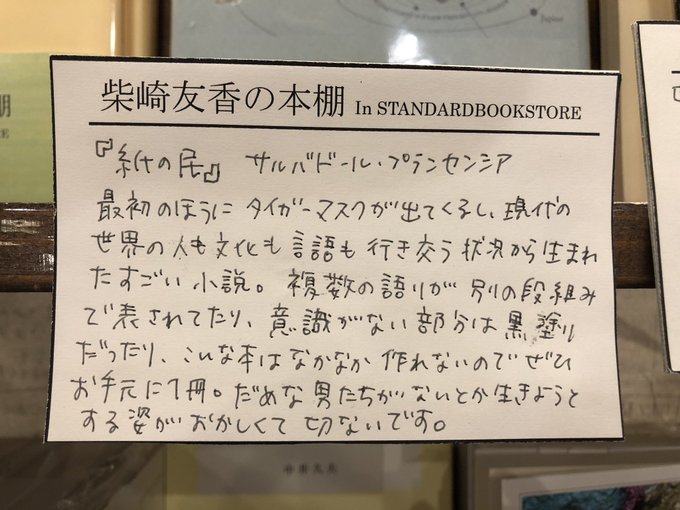 柴崎友香の本棚 In STANDARDBOOKSTORE
『紙の民』 サルバドール・プランセンシア
最初のほうに タイガーマスクが出てくるし、現代の
世界の人も文化も言語も行き交う状況から生まれ
たすごい小説。複数の語りが別の段組み
で表されてたり、意識がない部分は黒塗り
だったり、こんな本はなかなか作れないのでぜひ
お手元に1冊。だめな男たちがないとか生きようと
する姿がおかしくて切ないです。
Jupiter